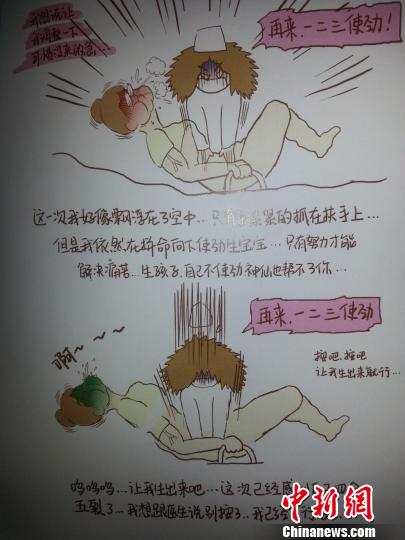 再来.一二三使劲!
我想说让
我调整一下
可惜没来的急...
这一次我好像飘浮在了空中...只有紧紧的抓在扶手上...
但是我依然在拚命向下使劲生宝宝...只有努力才能
解决痛苦...生孩子,自己不使劲神仙也帮不了你...
再来.一二三使劲
啊~~~
按吧.按吧
让我生出来就行...
呜呜呜...让我生出来吧...这次已经感
五裂了...我想跟医生说别按了...我已经
中新网
Chinanews.com